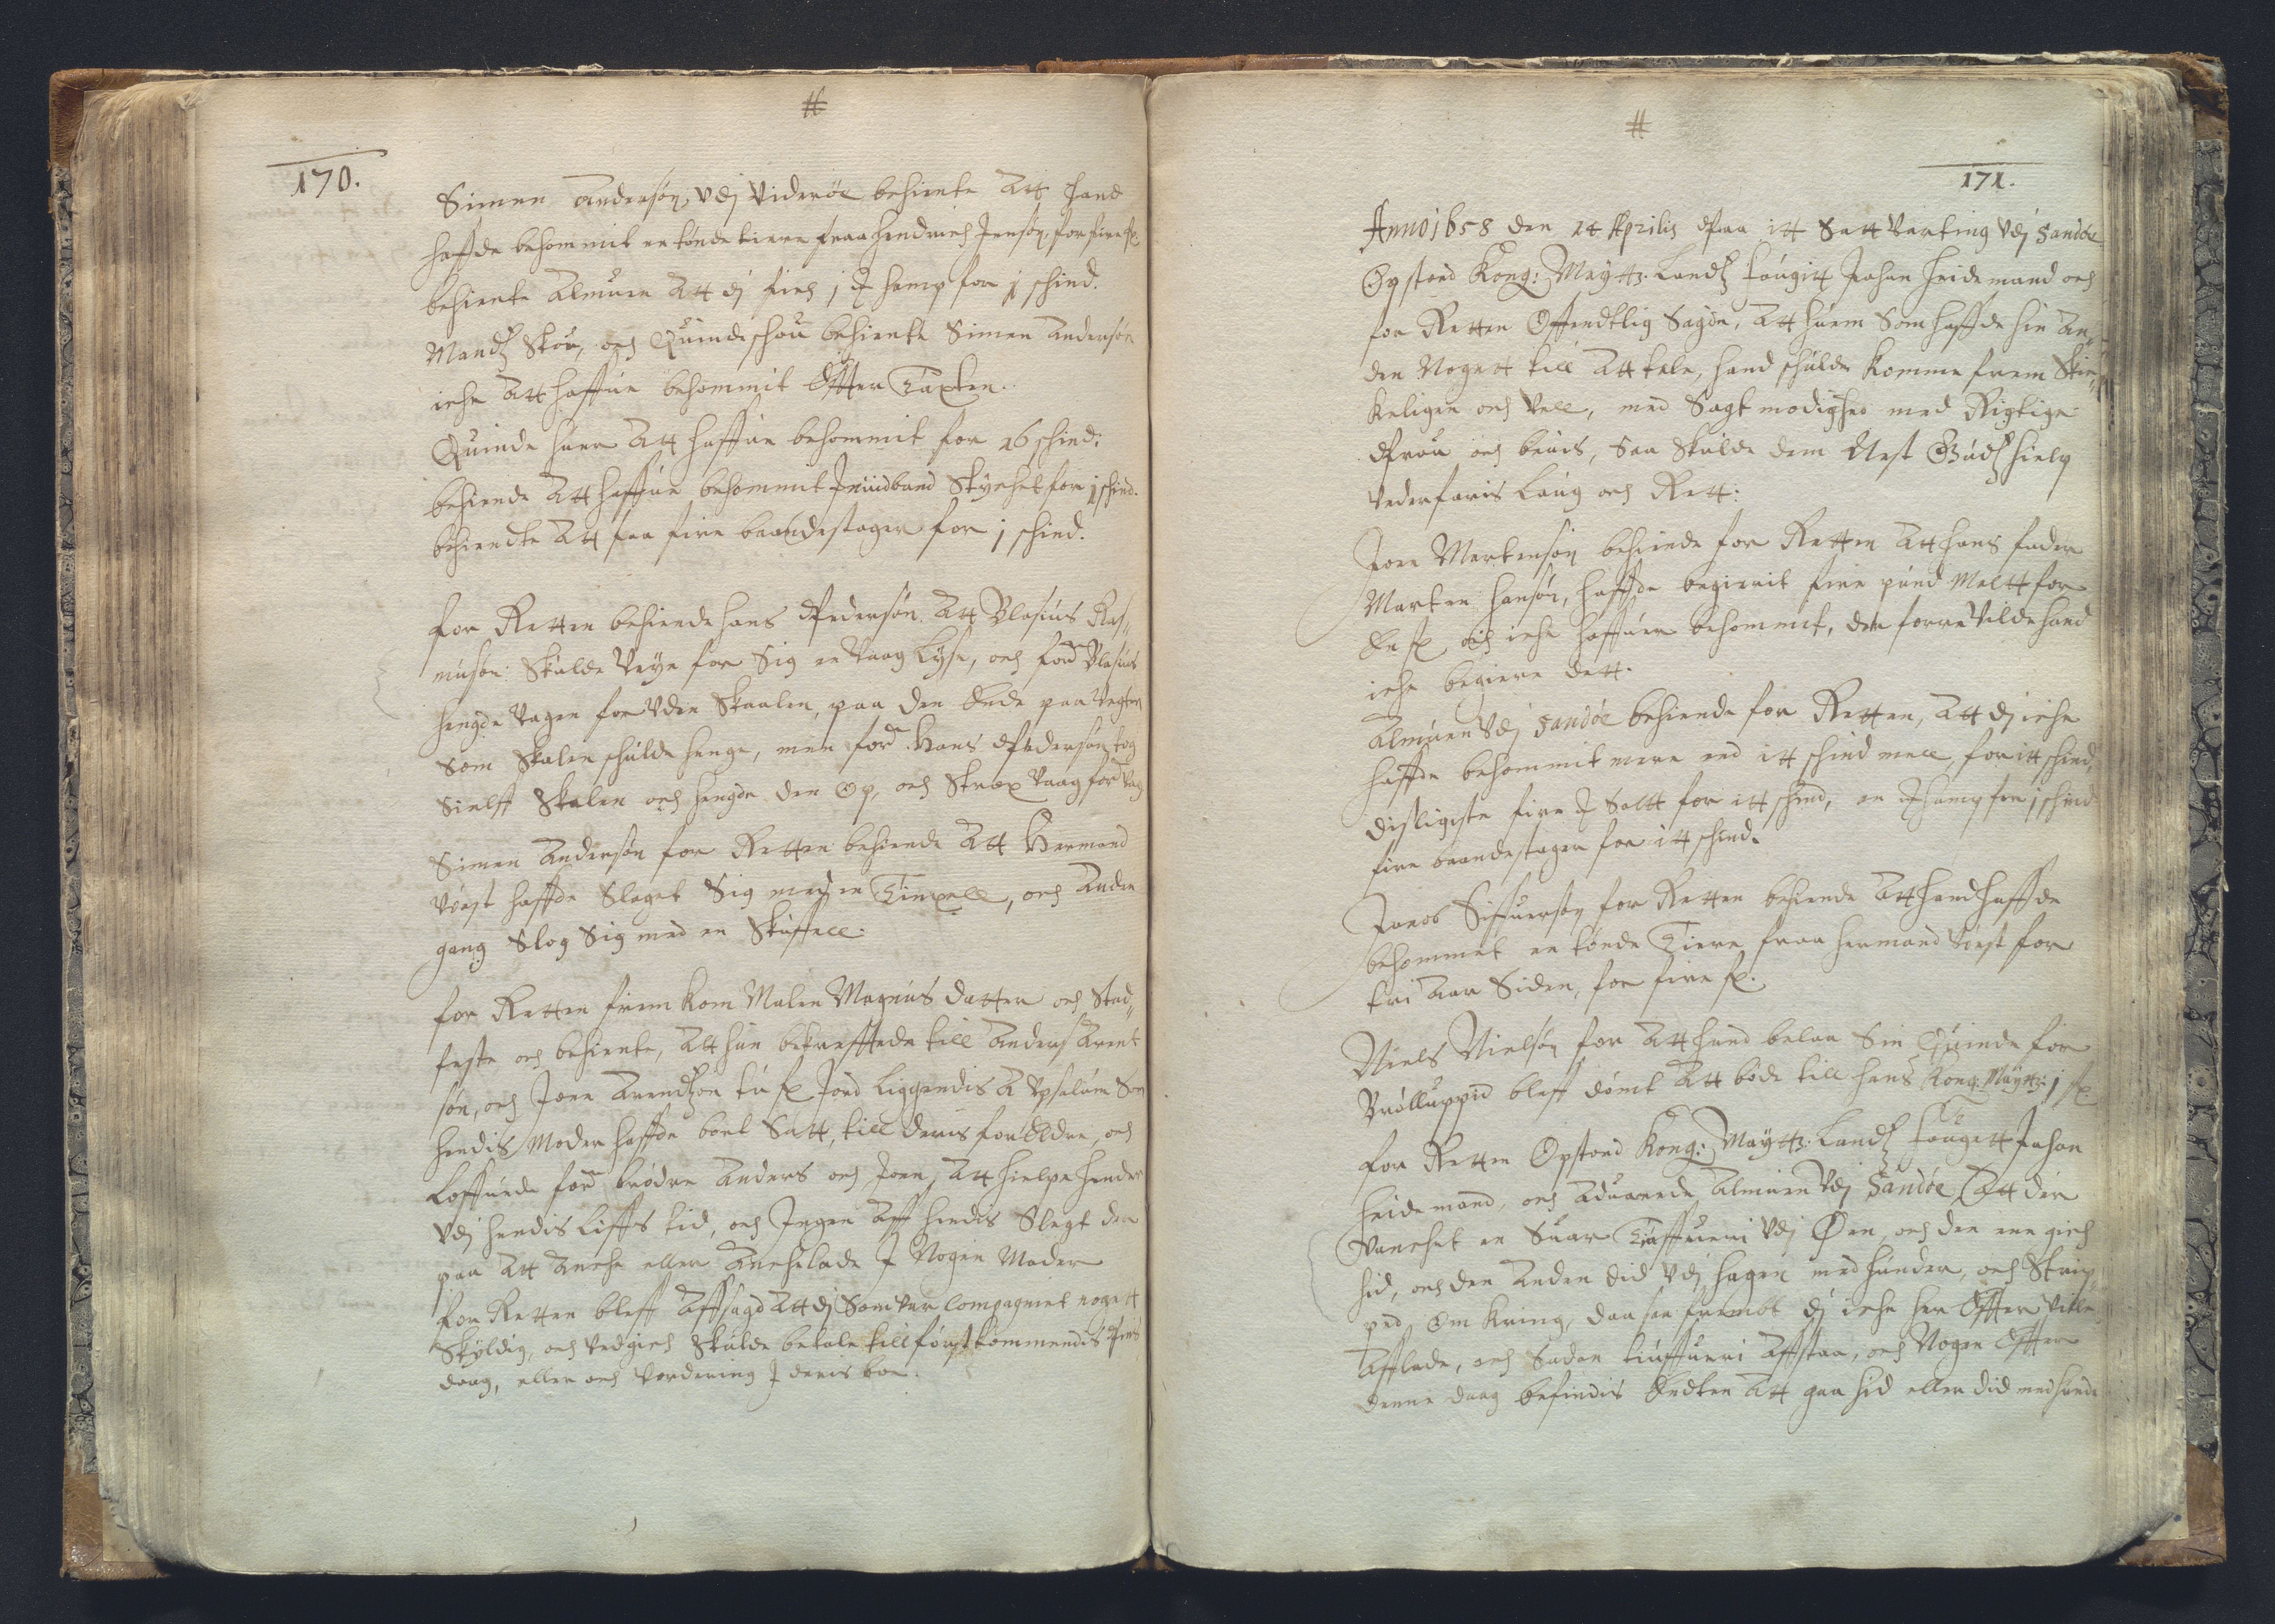 #
170.
Simen Andersøn, Vdj Viderøe bekiente Att Hand
haffde bekommit en tønde tierre fraa Hendrich Jensøn, for fire
bekiente Almuen Att dj fich j hamp for j schind.
Mandz Skou, och Quindeschou bekiente Simen Andersøn
iche Att haffue bekommit Effter Taxten.
Quinde huer Att haffue bekommit for 16 schind:
bekiende Att haffue bekommit Stychet for j schind.
bekiendte Att faa fire baandestager for j schind.
for Retten bekiende Hans Pedersøn Att Blasius Ras„
musøn: Skulde Veye for Sig en Vaag Lyse, och ford Blasius
hengde Vagen for Vden Skaalen, paa den Ende paa Vegten
Som Skalen schulde henge, men ford. Hans Pedersøn tog
Sielff Skalen och hengde den Op, och Strax Vaag ford Vag
Simen Andersøn for Retten bekiende Att Hermand
Vøst haffde Slaget Sig med en Timpell, och Anden
gang Slog Sig med en Skuffell.
for Retten frem kom Malen Magnus datter och Stad„
feste och bekiente, Att hun bekrefftede till Anders Arent
søn, och Joen Arendtzøn tu Jord Liggendis A Vpsalum Som
hendis Moder haffde bort Satt, till deris forEldre, och
Loffuede ford brødre Anders och Joen, Att hielpe hender
Vdj hendis Liffs tid, och Ingen Aff hendis Slegt der
paa Att Anche eller Anchelade J Nogen Mader
for Retten bleff Affsagd Att dj Som Var Compagniet nogett
Skyldig, och Vedgich Skulde betale till førstkommendis
daag, eller och Vordering J deris boe.
#
171.
Anno 1658 den 24 Aprilis Paa itt Satt Varting Vdj Sandøe
Opstoed Kong: Maytz. Landz fougitt Johan Heidemand och
for Retten Offendtlig Sagde, Att huem Som haffde hin An„
den Nogett till Att tale, hand schulde Komme frem Skie„
keligen och Vell, med Sagtmodighed med Rigtige
Prou och beuis, Saa Skulde dem Nest Gudz hielp
Vederfaris Laug och Rett:
Joen Martensøn bekiende for Retten Att hans fader
Marten Hansøn, haffde begierit fire pund Maltt for
En och iche haffuer bekommit, der forre Velde hand
iche begiere dett.
Almuen Vdj Sandøe bekiende for Retten, Att dj iche
haffde bekommit mere end itt schind mell for itt schind,
disligiste fire Saltt for itt schind, en hamp for j schind
fire baandestager for itt schind.
Joens Sifuersøn for Retten bekiende Att hand haffde
bekommet en tønde Tierre fraa Hermand Vøst for
tri Aar Siden, for fire
Niels Nielsøn for Att hand belaa Sin Quinde for
Brølluppid bleff dømt Att bøde till hans Kong: Maytz: j
for Retten Opstoed Kong: Maytz: Landz fougett Johan
Heidemand, och Aduarede Almuen Vdj Sandøe Att der
Vanchet en Suar Tiuffueri Vdj Øen, och den ene gich
hid, och den Anden did Vdj hagen med hunder, och Strip„
ped Om Kring, daa saa frembt dj iche her Effter Ville
Afflade, och Sadan tiuffueri Affstaa, och Nogen Effter
denne daag befindis Enckten Att gaa hid eller did med hunde